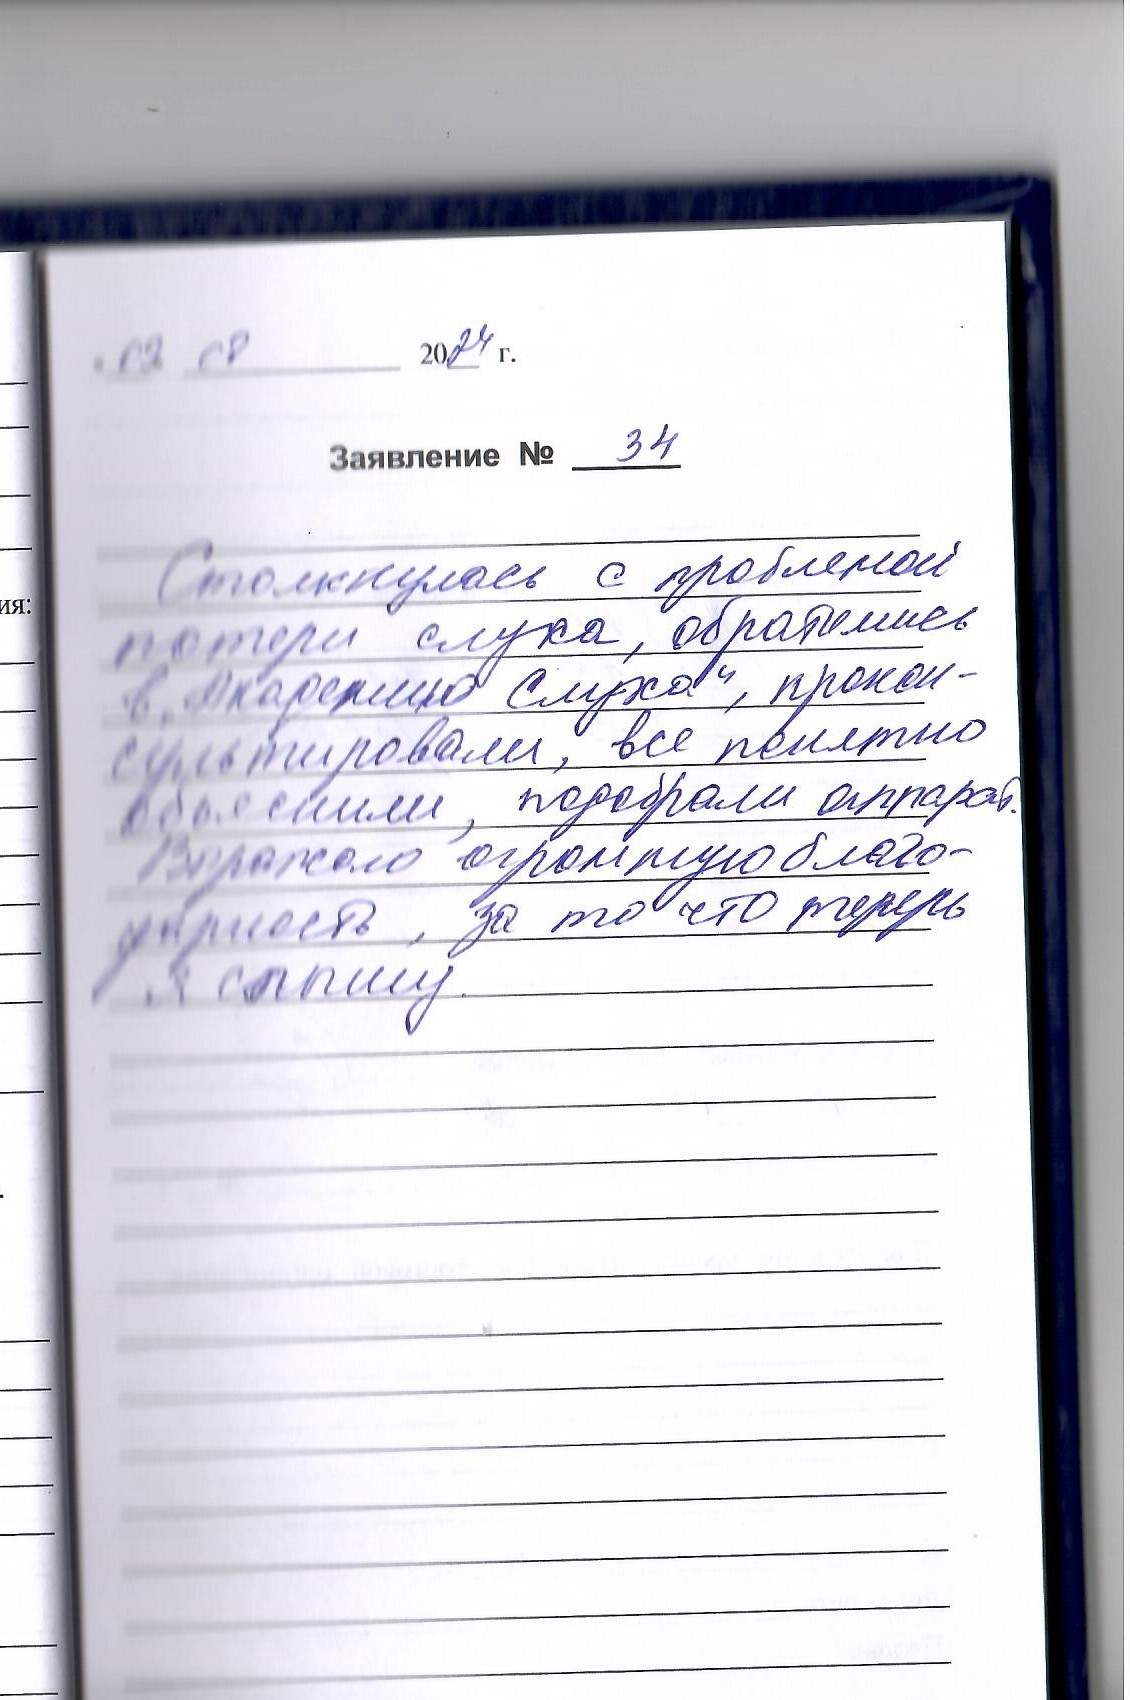 02 08 2024 г.
Заявление № 34
ия:
Столкнулась с проблемой
потери слуха, обратились
в „Академию Слуха", прокон-
сультировали, все понятно
объяснили, подобрали аппарат.
Выражаю огромную благо-
дарность, за то что теперь
я слышу.